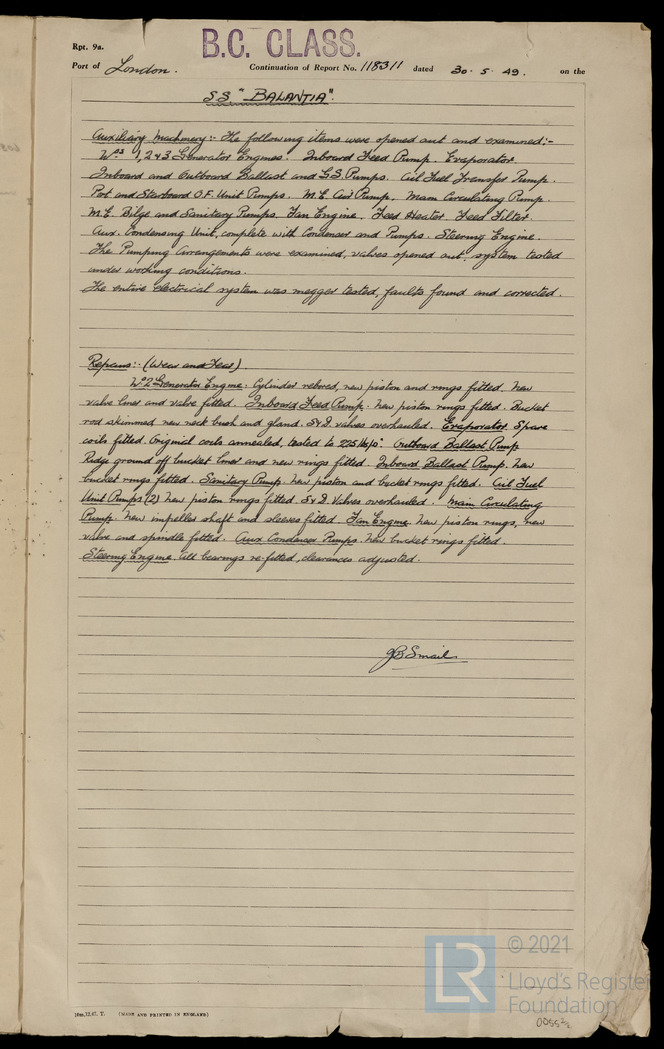 Rpt. 9a.
B.C. CLASS.
Port of London. Continuation of Report No. 118311 dated 30.5.49. on the
SS "BALANTIA".
Auxiliary Machinery:- The following items were opened out and examined:-
Nos 1, 2 & 3 Generator Engines. Inboard Feed Pump. Evaporator
Inboard and Outboard Ballast and G.S. Pumps. Oil Fuel Transfer Pump.
Port and Starboard O.F. Unit Pumps. M.E. Air Pump, Main Circulating Pump.
M.E. Bilge and Sanitary Pumps. Fan Engine. Feed Heater Feed Filter
Aux. Condensing Unit, complete with Condenser and Pumps. Steering Engine.
The Pumping Arrangements were examined, valves opened out, system tested
under working conditions.
The entire electrical system was megger tested, faults found and corrected.
Repairs:- (Wear and Tear).
No 2 Generator Engine. Cylinder rebored, new piston and rings fitted. New
valve liner and valve fitted. Inboard Feed Pump. New piston rings fitted. Bucket
rod skimmed new neck bush and gland. S & D. valves overhauled. Evaporator Spare
coils fitted. Original coils annealed, tested to 225 lb/□". Outboard Ballast Pump
Ridge ground off bucket liner and new rings fitted. Inboard Ballast Pump. New
bucket rings fitted. Sanitary Pump. New piston and bucket rings fitted. Oil Fuel
Unit Pumps (2) New piston rings fitted. S & D. Valves overhauled. Main Circulating
Pump. New impeller shaft and sleeves fitted. Fan Engine. New piston rings, new
valve and spindle fitted. Aux Condenser Pumps. New bucket rings fitted.
Steering Engine. All bearings re-fitted, clearances adjusted.
JB Smail
10m,12,47. T. (MADE AND PRINTED IN ENGLAND)
LR © 2021
Lloyd's Register
Foundation